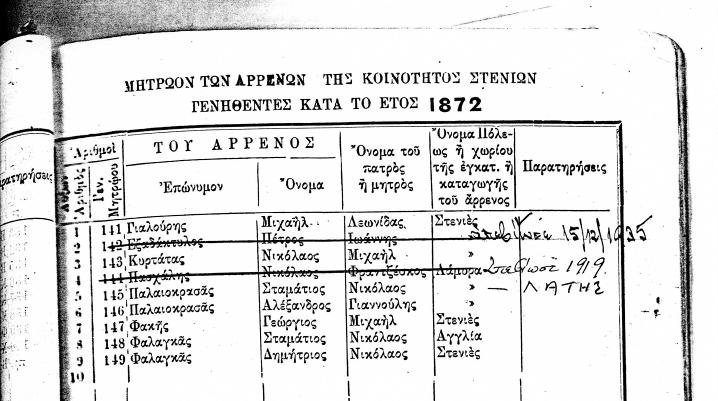 ΜΗΤΡΩΟΝ ΤΩΝ ΑΡΡΕΝΩΝ ΤΗΣ ΚΟΙΝΟΤΗΤΟΣ ΣΤΕΝΙΩΝ
ΓΕΝΗΘΕΝΤΕΣ ΚΑΤΑ ΤΟ ΕΤΟΣ 1872
Παρατηρήσεις
Ἀριθμοὶ
Αὔξων Ἀριθμὸς
Γεν. Μητρώου
ΤΟΥ ΑΡΡΕΝΟΣ
Ἐπώνυμον
Ὄνομα
Ὄνομα τοῦ
πατρὸς
ἢ μητρὸς
Ὄνομα Πόλε-
ως ἢ χωρίου
τῆς ἐγκατ. ἢ
καταγωγῆς
τοῦ ἄρρενος
Παρατηρήσεις
1 141 Γιαλούρης Μιχαὴλ Λεωνίδας Στενιὲς
2 142 Εξαδάκτυλος Πέτρος Ἰωάννης 15/12/1935
3 143 Κυρτάτας Νικόλαος Μιχαὴλ »
4 144 Πασχάλης Νικόλαος Φραντζέσκος Λάμυρα 1919
5 145 Παλαιοκρασᾶς Σταμάτιος Νικόλαος » — ΛΑΤΗΣ
6 146 Παλαιοκρασᾶς Αλέξανδρος Γιαννούλης »
7 147 Φακῆς Γεώργιος Μιχαὴλ Στενιὲς
8 148 Φαλαγκᾶς Σταμάτιος Νικόλαος Αγγλία
9 149 Φαλαγκᾶς Δημήτριος Νικόλαος Στενιὲς
10